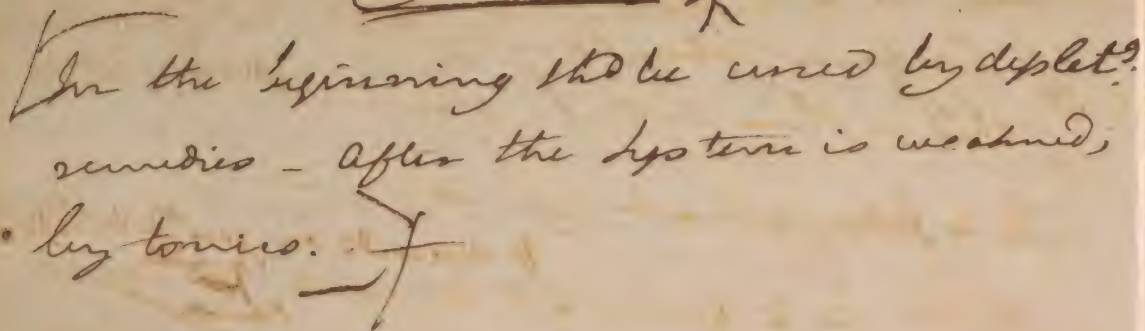 [In the beginning shd be cured by depletg
remedies - after the system is weakned,
by tonics.]